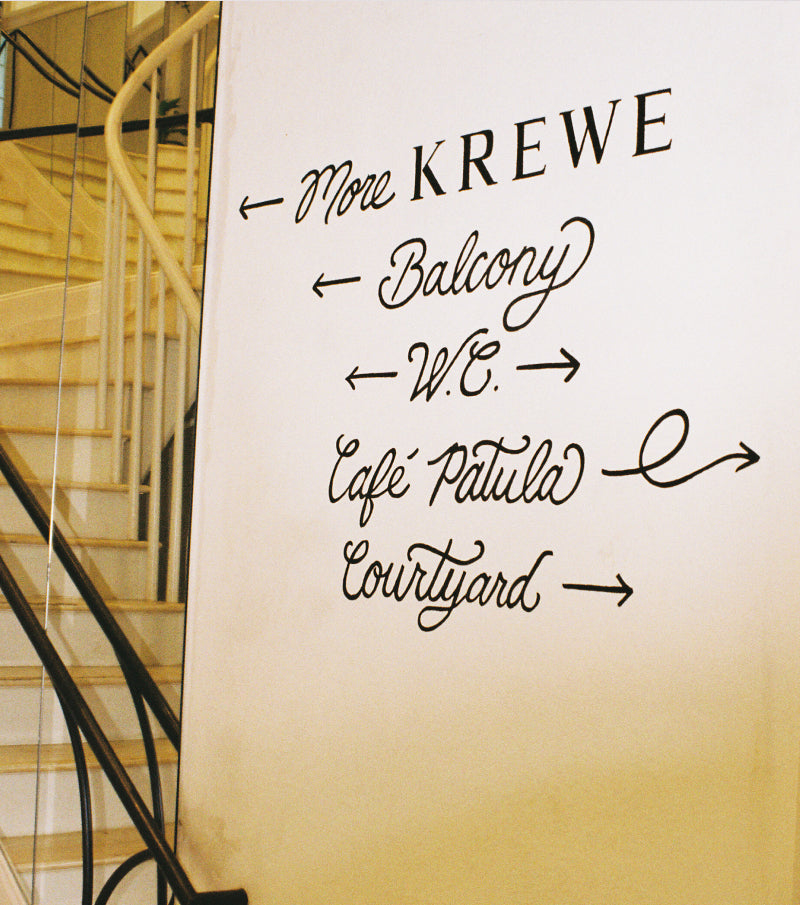 ← More KREWE
← Balcony
← W.C. →
Café Patula →
Courtyard →